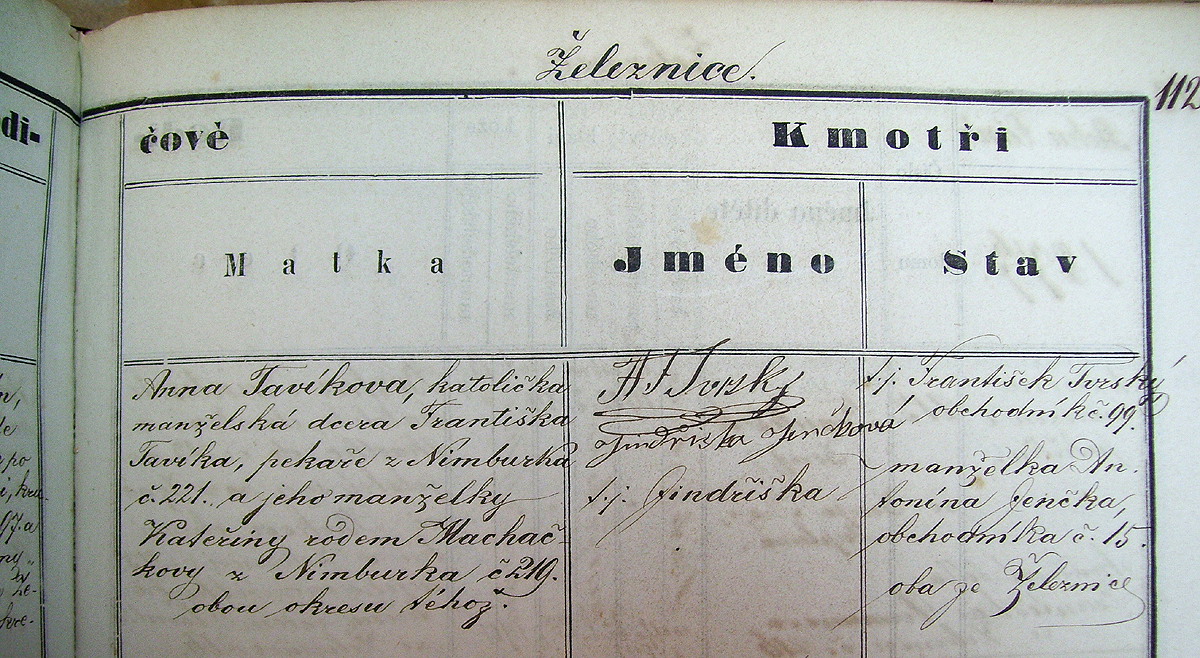 Železnice.
112
di-
čově
Kmotři
Matka
Jméno
Stav
Anna Tavíkova, katolička
manželská dcera Františka
Tavíka, pekaře z Nimburka
č. 221. a jeho manželky
Kateřiny rodem Machač-
kovy z Nimburka č 219.
obou okresu téhož.
Jindřiška Jenčková
t.j. Jindřiška
t.j. František Tvrský
obchodník č. 99.
manželka An-
tonína Jenčka,
obchodníka č. 15.
oba ze Železnice